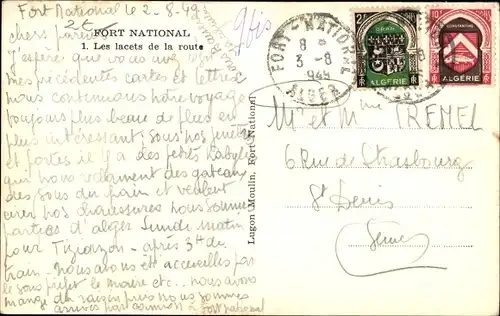 Fort National le 2-8-49
FORT NATIONAL
1. Les lacets de la route
chers
J'espère que vous avez
mes précédentes cartes et lettres
nous continuons notre voyage
toujours plus beau de plus en
plus intéressant; sous nos
et portes il y a des petits Kabyles
qui nous réclament des gateaux
des sous du pain et veulent
cirer nos chaussures nous sommes
partis d'alger lundi matin
pour Tiziouzou - après 3h de
train - nous avons été accueillis par
le sous préfet le maire etc.. nous avons
mangé du raisin puis nous sommes
arrivés par camion à Fort national
Lugon Moulin, Fort-National
9bis
FORT-NATIONAL
8 H
3 - 8
1949
ALGER
2F
ORAN
ALGÉRIE
10F
CONSTANTINE
ALGÉRIE
Mr et Mme TREMEL
6 Rue de Strasbourg
St Denis
Seine